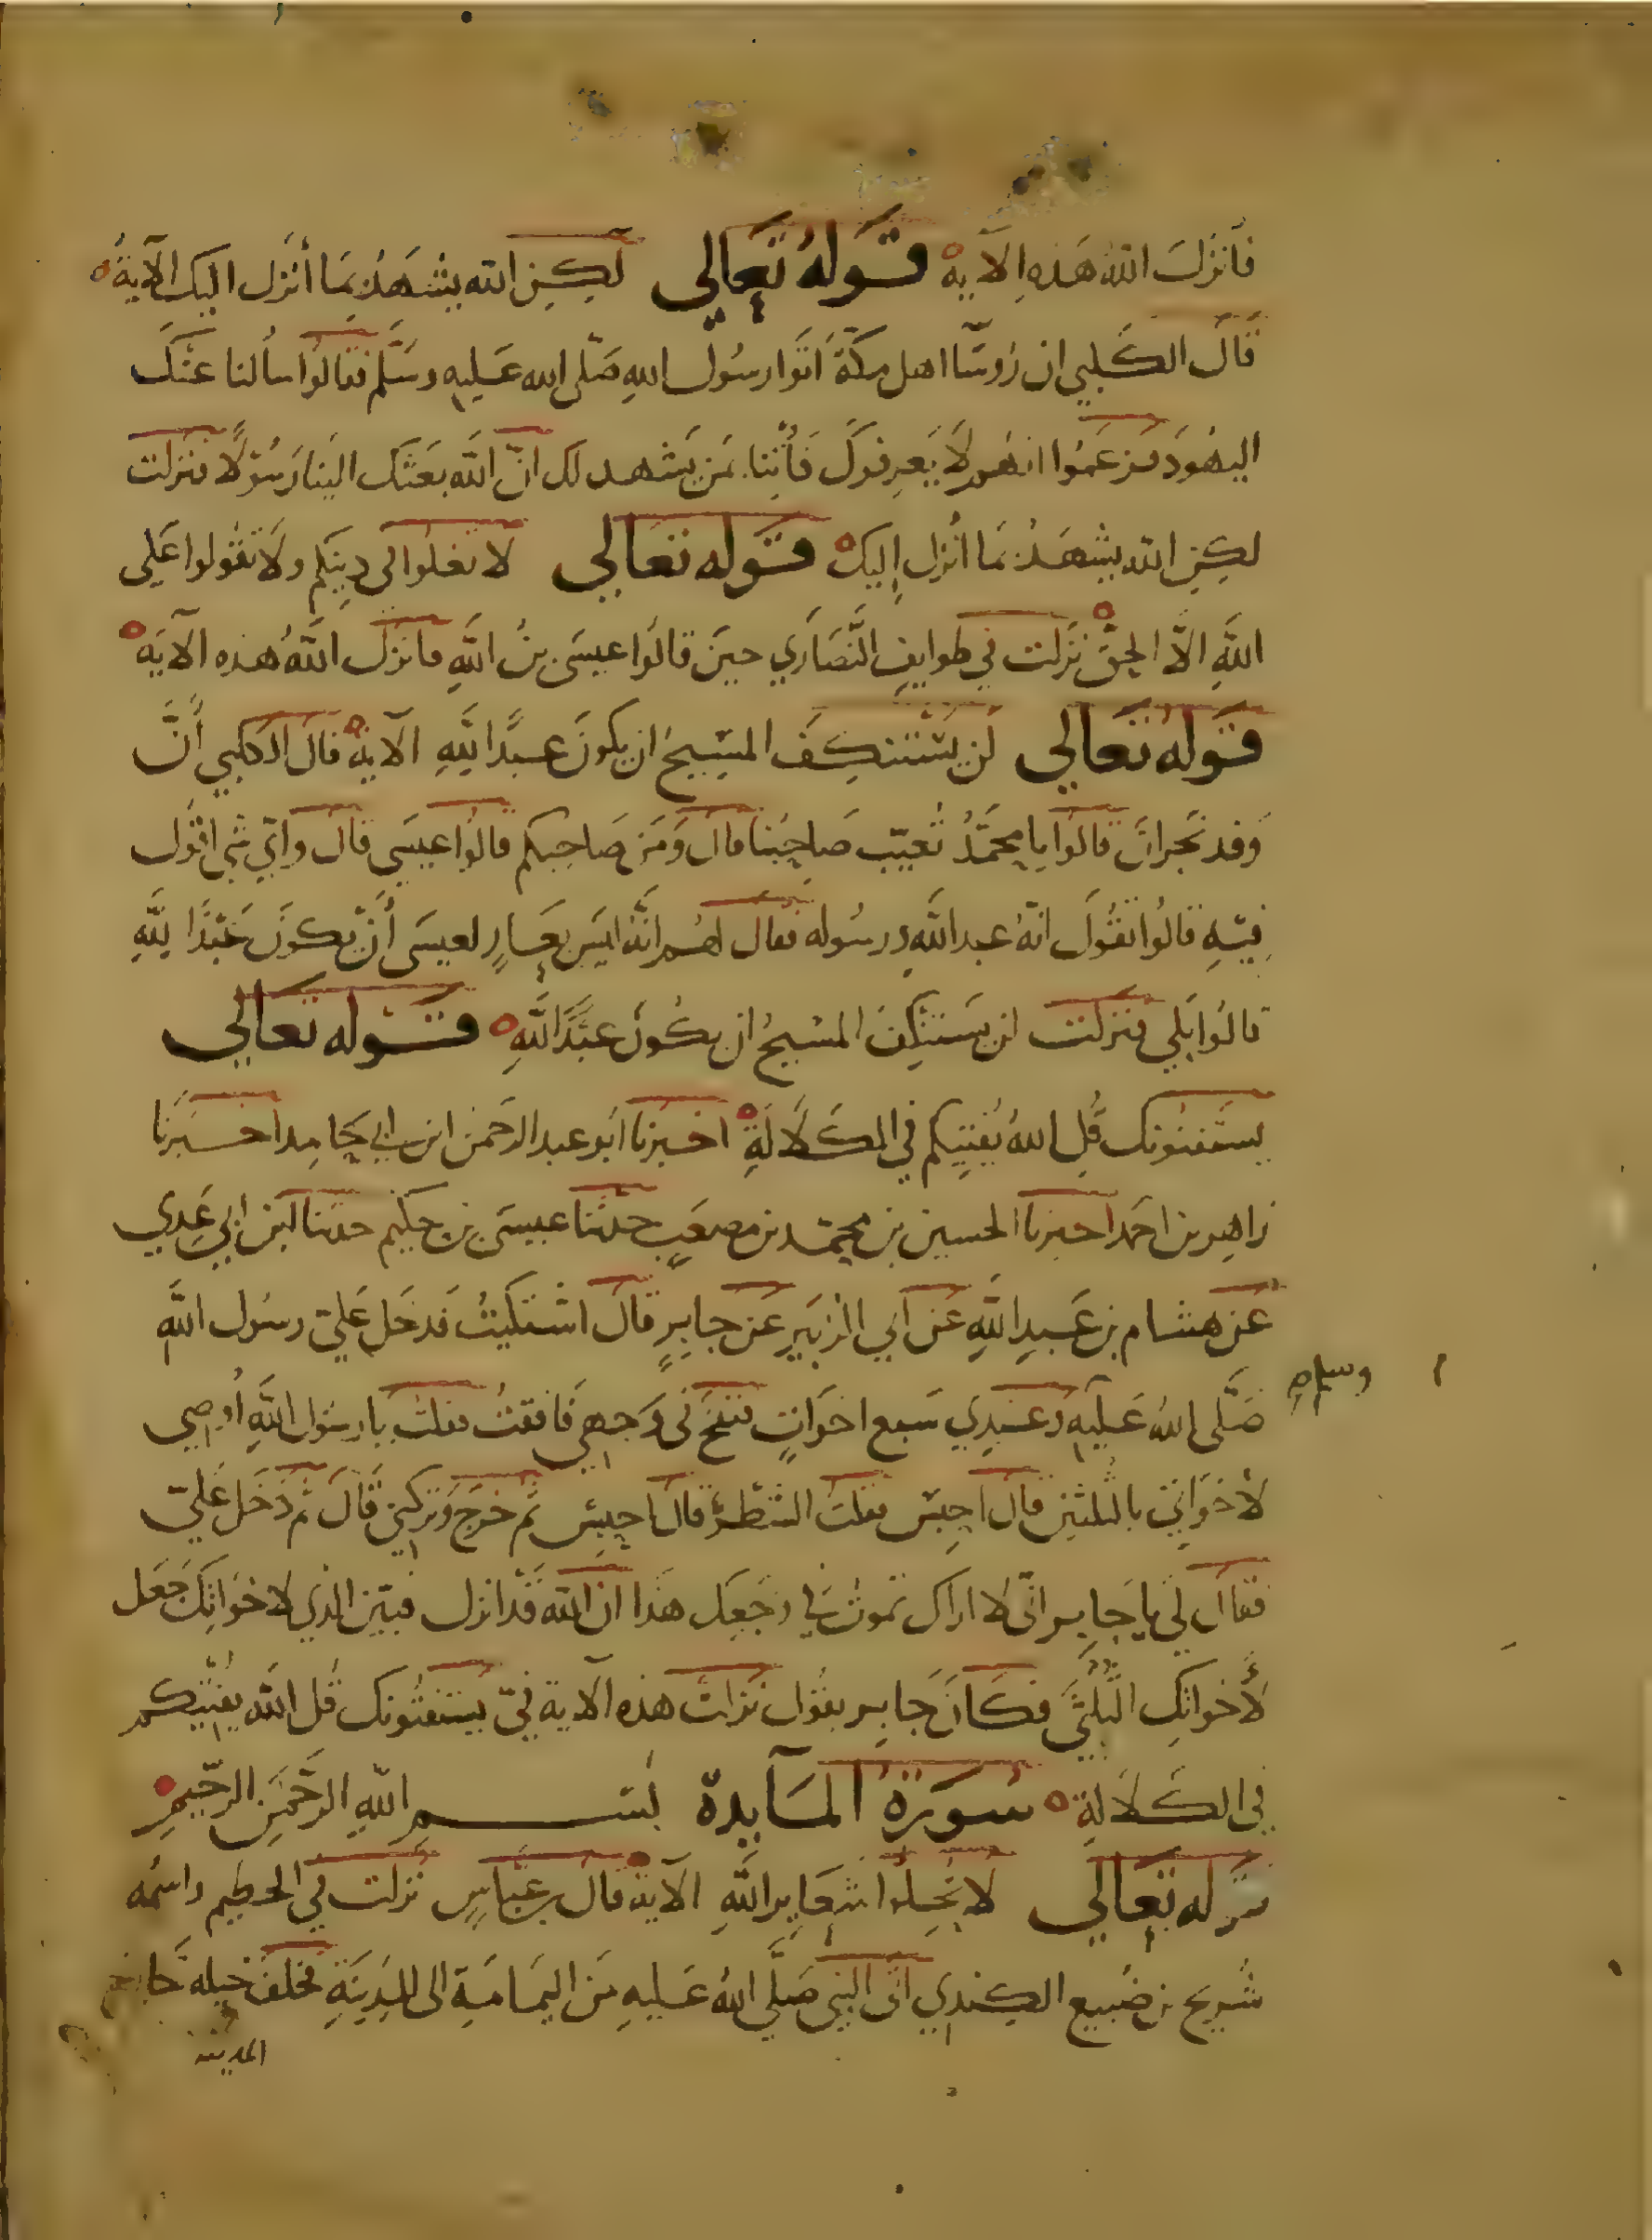 فأنزل الله هذه الآية ه قوله تعالى لكن الله يشهد بما أنزل اليك الآية ه
قال الكلبي ان رؤسا اهل مكة اتوا رسول الله صلى الله عليه وسلم فقالوا سالنا عنك
اليهود فزعموا انهم لا يعرفوك فأتنا بمن يشهد لك ان الله بعثك الينا رسولا فنزلت
لكن الله يشهد بما أنزل إليك ه قوله تعالى لا تغلوا في دينكم ولا تقولوا على
الله الا الحق ه نزلت في طوايف النصاري حين قالوا عيسى بن الله فانزل الله هذه الآية ه
قوله تعالى لن يستنكف المسيح ان يكون عبدا لله الآية ه قال الكلبي أن
وفد نجران قالوا يا محمد تعيب صاحبنا قال ومن صاحبكم قالوا عيسى قال واي شي اقول
فيه قالوا تقول انه عبد الله ورسوله فقال لهم انه ليس بعار لعيسى أن يكون عبدا لله
قالوا بلى فنزلت لن يستنكف المسيح ان يكون عبدا لله ه قوله تعالى
يستفتونك قل الله يفتيكم في الكلالة ه اخبرنا ابو عبد الرحمن ابن ابي حامد اخبرنا
زاهر بن احمد اخبرنا الحسين بن محمد بن مصعب حدثنا عيسى بن حكيم حدثنا ابن ابي عدي
عن هشام بن عبد الله عن ابي الزبير عن جابر قال اشتكيت فدخل علي رسول الله
صلى الله عليه وعندي سبع اخوات فنفخ في وجهي فافقت فقلت يا رسول الله أوصي
وسلم
لأخواتي بالثلثين قال احبس فقلت الشطر قال احبس ثم خرج وتركني قال ثم دخل علي
فقال لي يا جابر اني لا اراك تموت في وجعك هذا ان الله قد انزل فبين الذي لاخواتك جعل
لأخواتك الثلثي فكان جابر يقول نزلت هذه الآية في يستفتونك قل الله يفتيكم
في الكلالة ه سورة المايدة بسم الله الرحمن الرحيم
قوله تعالى لا تحلوا شعاير الله الآية قال بن عباس نزلت في الحطيم واسمه
شريح بن ضبيع الكندي اتى النبي صلى الله عليه من اليمامة الى المدينة فخلف خيله خارج
المدينة